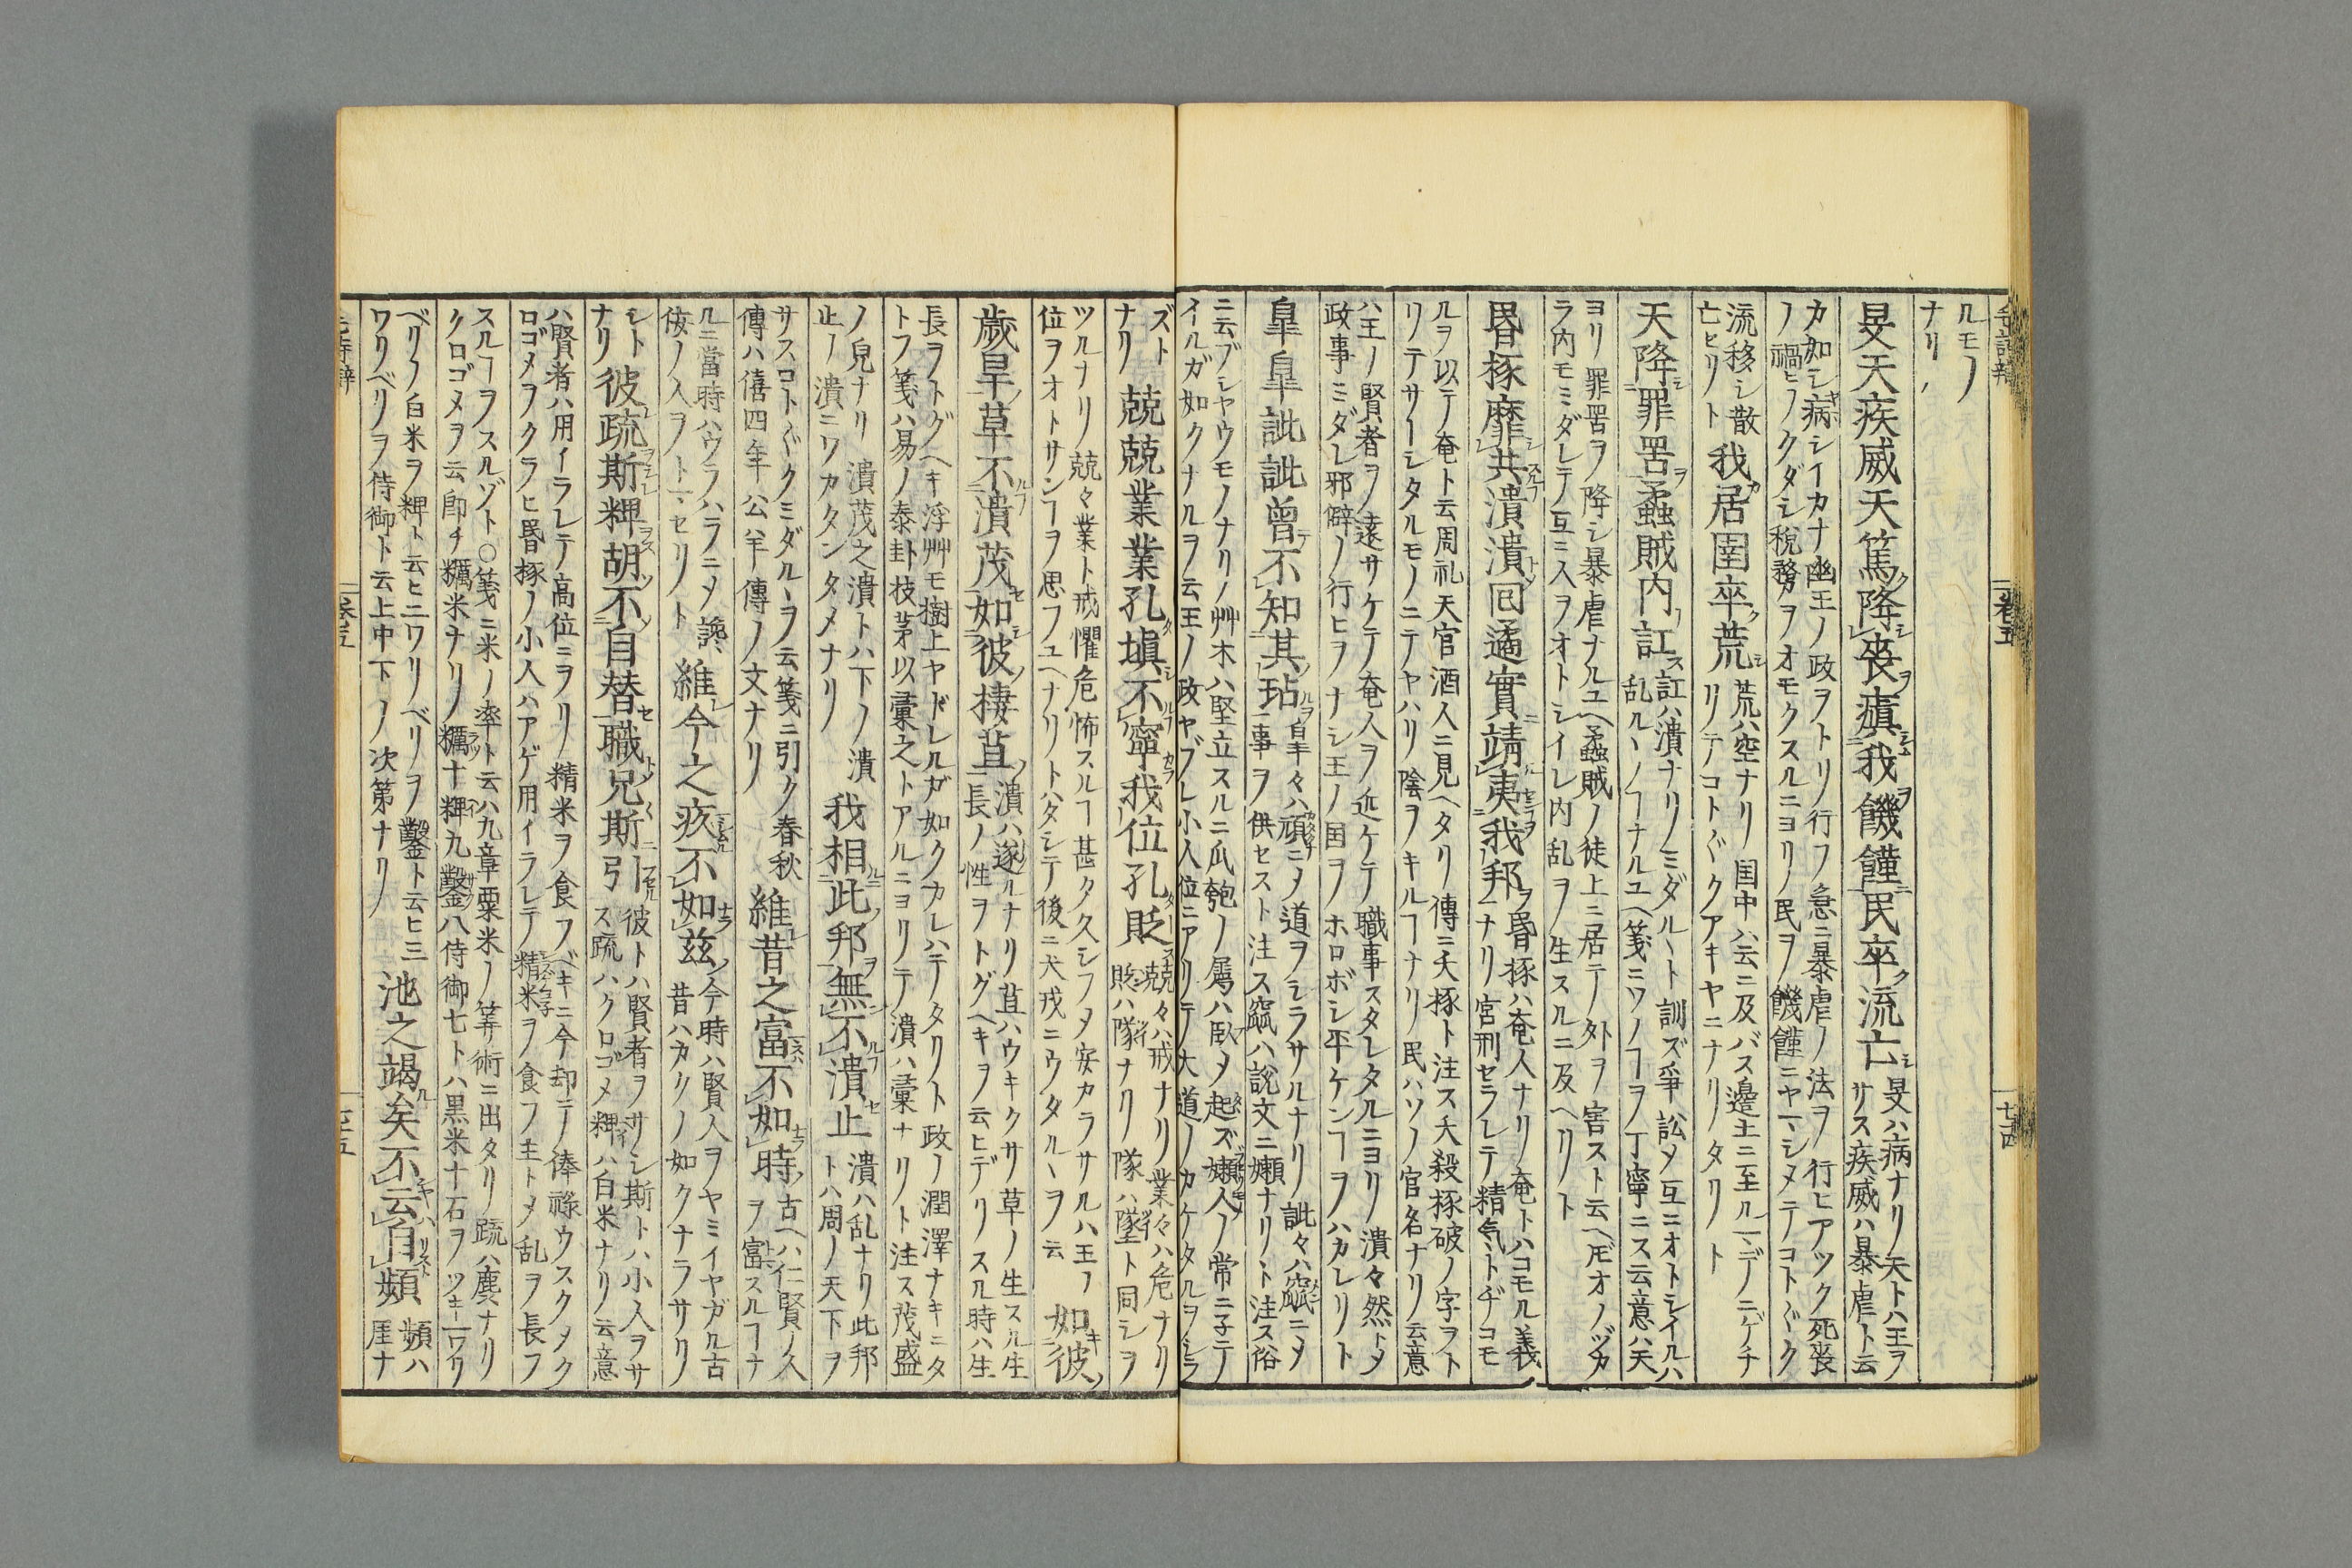 毛詩辨 卷五 七十四
ルモノ
ナリ
旻天疾威天篤降喪瘨我饑饉民卒流亡
旻ハ病ナリ天トハ王ヲ
サス疾威ハ暴虐ト云
カ如シ病シイカナ幽王ノ政ヲトリ行フ急ニ暴虐ノ法ヲ行ヒアツク死喪
ノ禍ヒヲクダシ税務ヲオモクスルニヨリ民ヲ饑饉ニヤマシメテコトゴトク
流移シ散
亡ヒリト
我居圉卒荒
荒ハ空ナリ国中ハ云ニ及バス邊土ニ至ルマデノニゲチ
リテコトゴトクアキヤニナリタリト
天降罪罟蟊賊内訌
訌ハ潰ナリミダルヽト訓ズ爭訟メ互ニオトシイルハ
乱ルヽノヿナルユヘ箋ニソノヿヲ丁寧ニス云意ハ天
ヨリ罪罟ヲ降シ暴虐ナルユヘ蟊賊ノ徒上ニ居テ外ヲ害スト云ヘ𪜈オノヅカ
ラ内モミダレテ互ニ人ヲオトシイレ内乱ヲ生スルニ及ヘリト
昬椓靡共潰潰回遹實靖夷我邦
昬椓ハ奄人ナリ奄トハコモル義
ナリ宮刑セラレテ精気トヂコモ
ルヲ以テ奄ト云周礼天官酒人ニ見ヘタリ傳ニ夭椓ト注ス夭殺椓破ノ字ヲト
リテサーシタルモノニテヤハリ陰ヲキルヿナリ民ハソノ官名ナリ云意
ハ王ノ賢者ヲ遠サケテ奄人ヲ近ケテ職事スタレタルニヨリ潰々然トメ
政事ミダレ邪僻ノ行ヒヲナシ王ノ国ヲホロボシ平ケンヿヲハカレリト
皐皐訿訿曾不知其玷
皐々ハ頑ニメ道ヲシラサルナリ訿々ハ窳ニメ
事ヲ供セスト注ス窳ハ說文ニ嬾ナリト注ス俗
ニ云ブシヤウモノナリ艸木ハ堅立スルニ瓜匏ノ屬ハ臥メ起ズ嬾人ノ常ニ子テノ
イルガ如クナルヲ云王ノ政ヤブレ小人位ニアリテ大道ノカケタルヲシラ
ズト
ナリ
兢兢業業孔塡不寧我位孔貶
兢々ハ戒ナリ業々ハ危ナリ
貶ハ隊ナリ隊ハ墜ト同シヲ
ツルナリ兢々業ト戒懼危怖スルヿ甚タ久シフメ安カラサルハ王ノ
位ヲオトサンヿヲ思フユヘナリトハタシテ後ニ犬戎ニウタルヽヲ云
如彼
歲旱草不潰茂如彼棲苴
潰ハ遂ルナリ苴ハウキクサ草ノ生スル生
長ノ性ヲトグヘキヲ云ヒデリスル時ハ生
長ヲトグヘキ浮艸モ樹上ヤドレルガ如クカレハテタリト政ノ潤澤ナキニタ
トフ箋ハ易ノ泰卦枝茅以彙之トアルニヨリテ潰ハ彙ナリト注ス茂盛
ノ皃ナリ潰茂之潰トハ下ノ潰
止ノ潰ニワカタンタメナリ
我相此邦無不潰止
潰ハ乱ナリ此邦
トハ周ノ天下ヲ
サスコトゴトクミダルヽヲ云箋ニ引ク春秋
傳ハ僖四年公羊傳ノ文ナリ
維昔之富不如時
古ヘハ仁賢ノ人
ヲ富スルヿナ
ルニ當時ハウラハラニメ讒
佞ノ人ヲトマセリト
維今之疚不如茲
今時ハ賢人ヲヤミイヤガル古
昔ハカクノ如クナラサリ
シト
ナリ
彼疏斯粺胡不自替職兄斯引
彼トハ賢者ヲサシ斯トハ小人ヲサ
ス疏ハクロゴメ粺ハ白米ナリ云意
ハ賢者ハ用イラレテ高位ニヲリ精米ヲ食フベキニ今却テ俸祿ウスクメク
ロゴメヲクラヒ昬椓ノ小人ハアゲ用イラレテ精米ヲ食フ主トメ乱ヲ長フ
スルヿヲスルゾト○箋ニ米ノ率ト云ハ九章粟米ノ筭術ニ出タリ疏ハ麤ナリ
クロゴメヲ云卽チ糲米ナリ糲十粺九鑿八侍御七トハ黒米十石ヲツキ一ワリ
ベリノ白米ヲ粺ト云ヒ二ワリベリヲ鑿ト云ヒ三
ワリベリヲ侍御ト云上中下ノ次第ナリ
池之竭矣不云自頻
頻ハ
厓ナ
毛詩辨 卷五 七十五